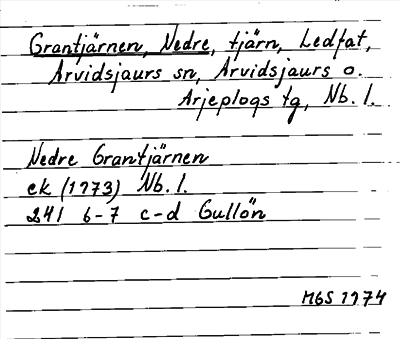 Grantjärnen, Nedre, tjärn, Ledfat,
Arvidsjaurs sn, Arvidsjaurs o.
Arjeplogs tg, Nb. l.
Nedre Grantjärnen
ek (1973) Nb. l.
241 6-7 c-d Gullön
MGS 1974